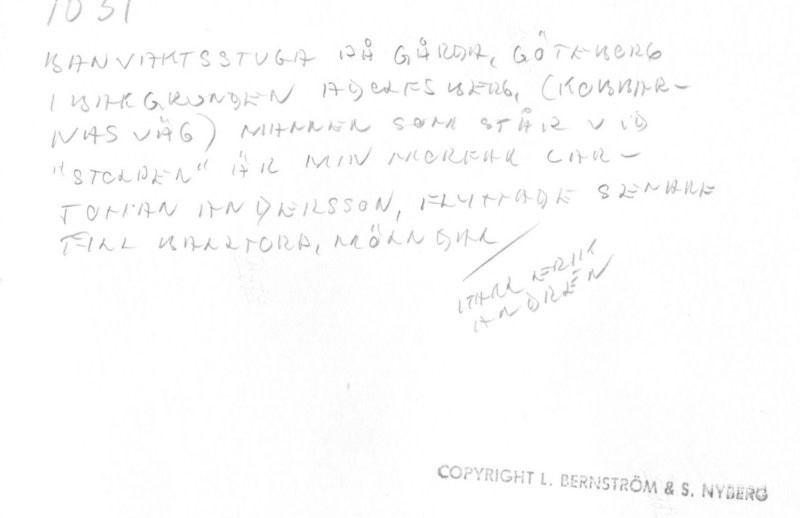 1031
BANVAKTSSTUGA PÅ GÅRDA, GÖTEBORG
I BAKGRUNDEN ADOLFSBERG, (KOBBAR-
NAS VÄG) MANNEN SOM STÅR VID
"STOLPEN" ÄR MIN MORFAR CAR-
JOHAN ANDERSSON, FLYTTADE SENARE
TILL BALLTORP, MÖLNDAL
KARL ERIK
ANDRÉN
COPYRIGHT L. BERNSTRÖM & S. NYBERG